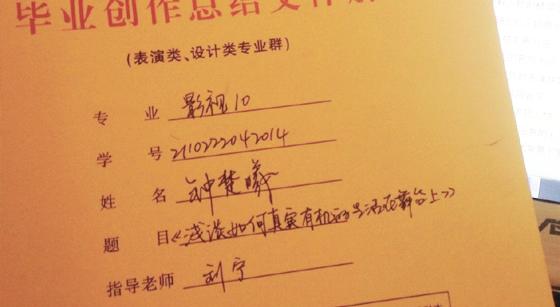 毕业创作总结文件
(表演类、设计类专业群)
专 业 影视10
学 号 2110222042014
姓 名 钟楚曦
题 目 《浅谈如何真实有机的生活在舞台上》
指导老师 刘宁